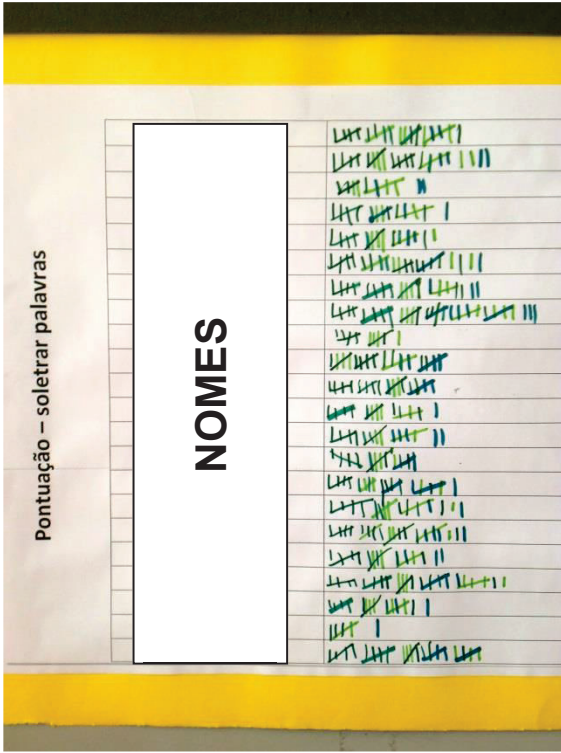 Pontuação – soletrar palavras
NOMES